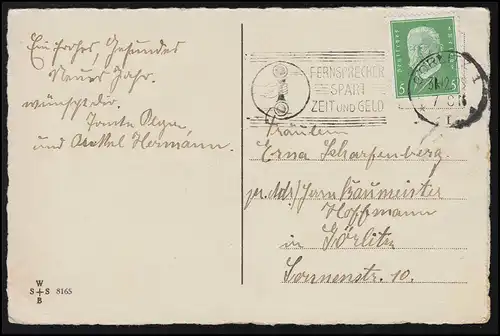 Ein frohes, gesundes
Neues Jahr.
wünscht dir.
Tante Olga,
und Onkel Hermann.
W
S + S 8165
B
FERNSPRECHER
SPART
ZEIT UND GELD
5 5
Fräulein
Erna Scharfenberg.
pr. Adr./Herrn Baumeister
Hoffmann
in Görlitz
Sonnenstr. 10.